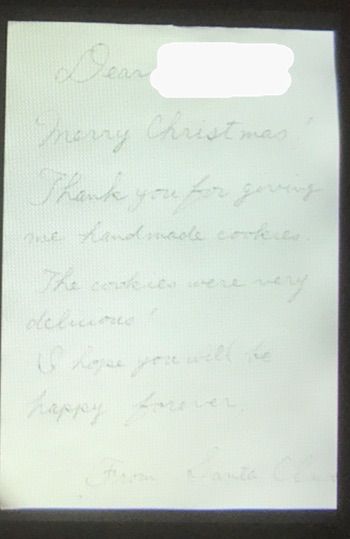 Dear
Merry Christmas!
Thank you for giving
me handmade cookies.
The cookies were very
delicious!
I hope you will be
happy forever.
From Santa